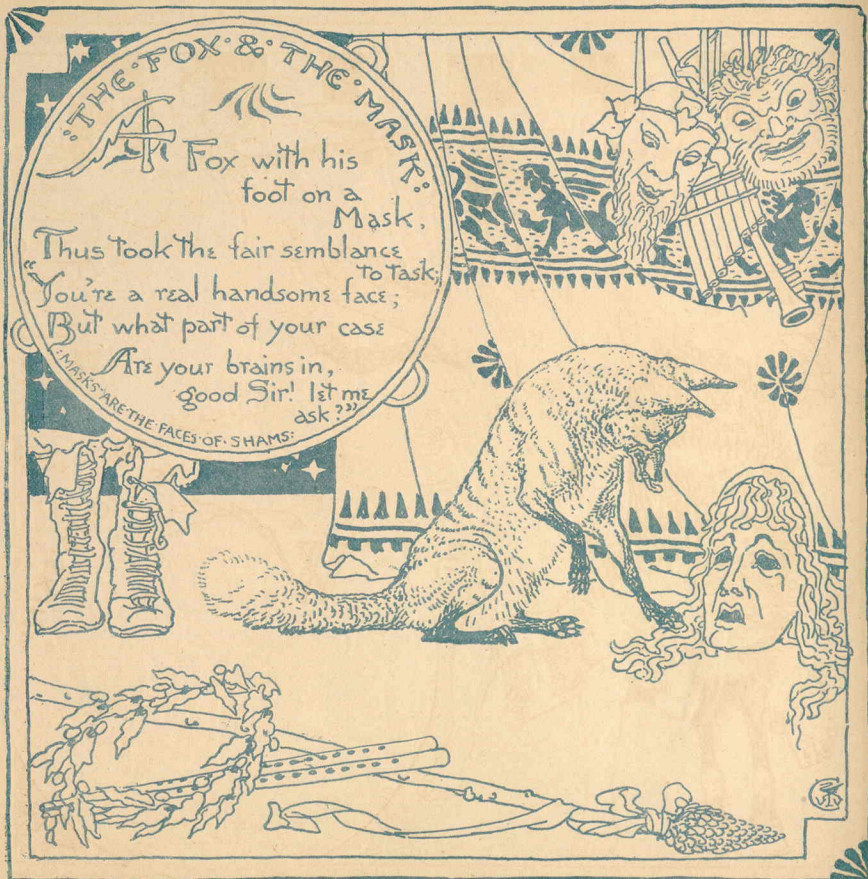 :THE·FOX·&·THE·MASK:
A Fox with his
foot on a
Mask,
Thus took the fair semblance
to task;
"You're a real handsome face;
But what part of your case
Are your brains in,
good Sir! let me
ask?"
:MASKS·ARE·THE·FACES·OF·SHAMS: